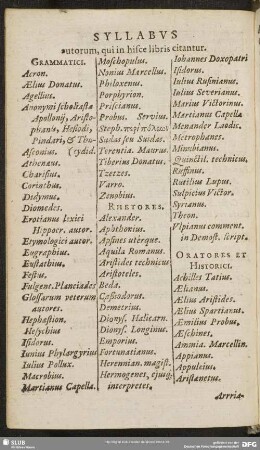 SYLLABVS
autorum, qui in hisce libris citantur.
GRAMMATICI.
Acron.
Ælius Donatus.
Agellius.
Anonymi scholiastæ
Apollonij, Aristo-
phanis, Hesiodi,
Pindari, & Thu-
Asconius. (cydid.
Athenæus.
Charisius.
Corinthus.
Didymus.
Diomedes.
Erotianus lexici
Hippocr. autor.
Etymologici autor.
Eugraphius.
Eustathius.
Festus.
Fulgent. Planciades
Glossarum veterum
autores.
Hephæstion.
Hesychius
Isidorus.
Iunius Phylargyrius
Iulius Pollux.
Macrobius.
Martianus Capella.
Moschopulus.
Nonius Marcellus.
Philoxenus.
Porphyrion.
Priscianus.
Probus. Servius.
Steph. περὶ πόλεων
Suidas seu Suidæ.
Terentia. Maurus.
Tiberius Donatus.
Tzetzes.
Varro.
Zenobius.
RHETORES.
Alexander.
Aphthonius.
Apsines uterque.
Aquila Romanus.
Aristides technicus
Aristoteles.
Beda.
Cassiodorus.
Demetrius.
Dionys. Halicarn.
Dionys. Longinus.
Emporius.
Fortunatianus.
Herennian. magist.
Hermogenes, ejusq;
interpretes,
Iohannes Doxopatri
Isidorus.
Iulius Rufinianus.
Iulius Severianus.
Marius Victorinus.
Martianus Capella
Menander Laodic.
Metrophanes.
Minuthianus.
Quinctil. technicus,
Ruffinus.
Rutilius Lupus.
Sulpicius Victor.
Syrianus.
Theon.
Vlpianus comment.
in Demost. script.
ORATORES ET
HISTORICI.
Achilles Tatius.
Ælianus.
Ælius Aristides.
Ælius Spartianus.
Æmilius Probus.
Æschines.
Ammia. Marcellin.
Appianus.
Appuleius.
Aristænetus.
Arria-
SLUB